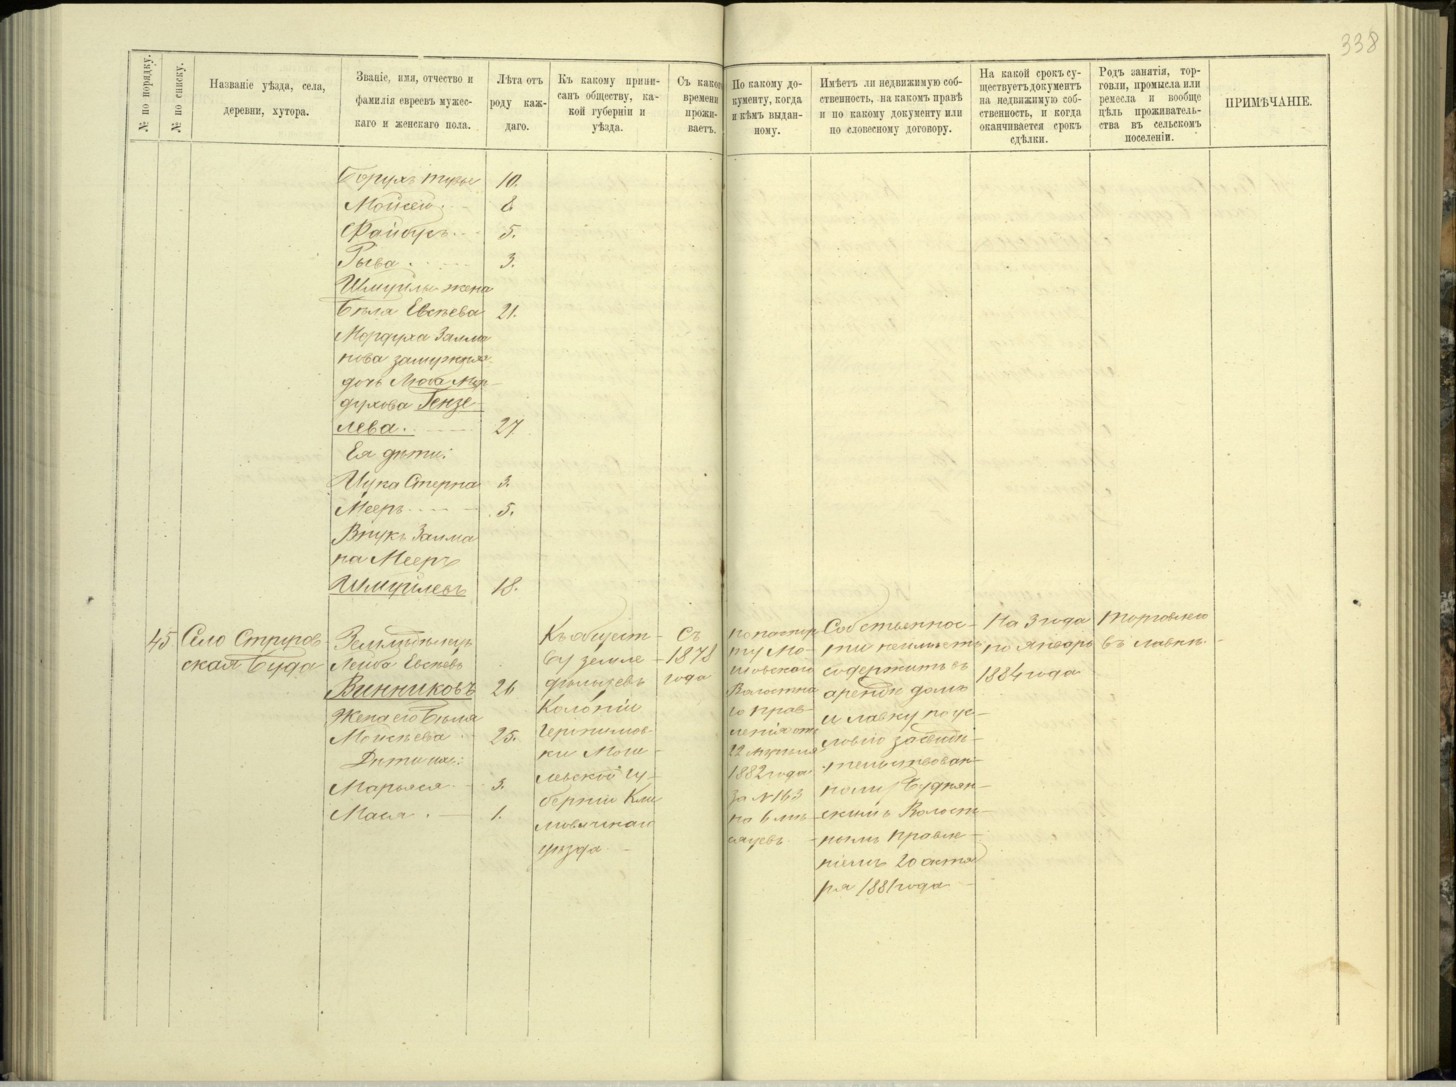 338
№ по порядку.
№ по списку.
Названіе уѣзда, села,
деревни, хутора.
Званіе, имя, отчество и
фамилія евреевъ мужес-
каго и женскаго пола.
Лѣта отъ
роду каж-
даго.
Къ какому припи-
санъ обществу, ка-
кой губерніи и
уѣзда.
Съ какого
времени
прожи-
ваетъ.
По какому до-
кументу, когда
и кѣмъ выдан-
ному.
Имѣетъ ли недвижимую соб-
ственность, на какомъ правѣ
и по какому документу или
по словесному договору.
На какой срокъ су-
ществуетъ документъ
на недвижимую соб-
ственность, и когда
оканчивается срокъ
сдѣлки.
Родъ занятія, тор-
говли, промысла или
ремесла и вообще
цѣль проживатель-
ства въ сельскомъ
поселеніи.
ПРИМѢЧАНІЕ.
Борухъ 10.
Мойсей 8
Файбусъ 5.
Рыва 3.
жена
Бѣла Евсѣева 21.
Мордуха Залма
нова замужняя
дочь Люба Мор-
духова Гензе-
лева. 27
Ея дѣти:
Стерна 3.
Мееръ 5.
Внукъ Залма
на Мееръ
Шмуйлевъ 18.
45 Село
ская Буда
Земледѣлецъ
Лейба Евсѣевъ
Винниковъ 26
Жена его Бѣля
Моисѣева 25.
Дѣти ихъ:
Марьяся 3.
Мася 1.
Къ общест-
ву земле-
дѣльцевъ
Колоніи
ки Моги-
левской гу-
берніи Кли
мовичскаго
уѣзда
Съ
1878
года
по паспор
ту
Волостна
го Прав-
ленія отъ
22 Апрѣля
1882 года
за № 163
на 6 мѣ-
сяцевъ
Собственнос-
ти неимѣетъ
содержитъ въ
арендѣ домъ
и лавку по ус-
ловію засвидѣ-
тельствован-
ному Буднян-
скимъ Волост-
нымъ Правле-
ніемъ 20 октя
ря 1881 года
На 3 года
по Январь
1884 года
Торговлею
въ лавкѣ